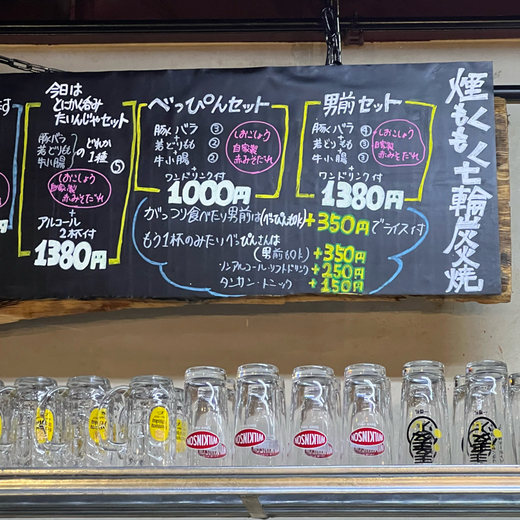 煙もくもく七輪炭火焼
今日は
とにかく呑み
たいんじゃセット
豚バラ
若どりもも
牛小腸
どれか
1種
⑤
しおこしょう
自家製
赤みそだれ
+
アルコール
2杯付
1380円
べっぴんセット
豚バラ ③
若どりもも ②
牛小腸 ②
しおこしょう
自家製
赤みそだれ
ワンドリンク付
1000円
男前セット
豚バラ ④
若どりもも ④
牛小腸 ③
しおこしょう
自家製
赤みそだれ
ワンドリンク付
1380円
がっつり食べたり男前は(べっぴんもOK) +350円でライス付
もう1杯のみたいべっぴんさんは
(男前もOK) +350円
ソフトドリンク +250円
タンサン・トニック +150円
WILKINSON
WILKINSON
WILKINSON
WILKINSON